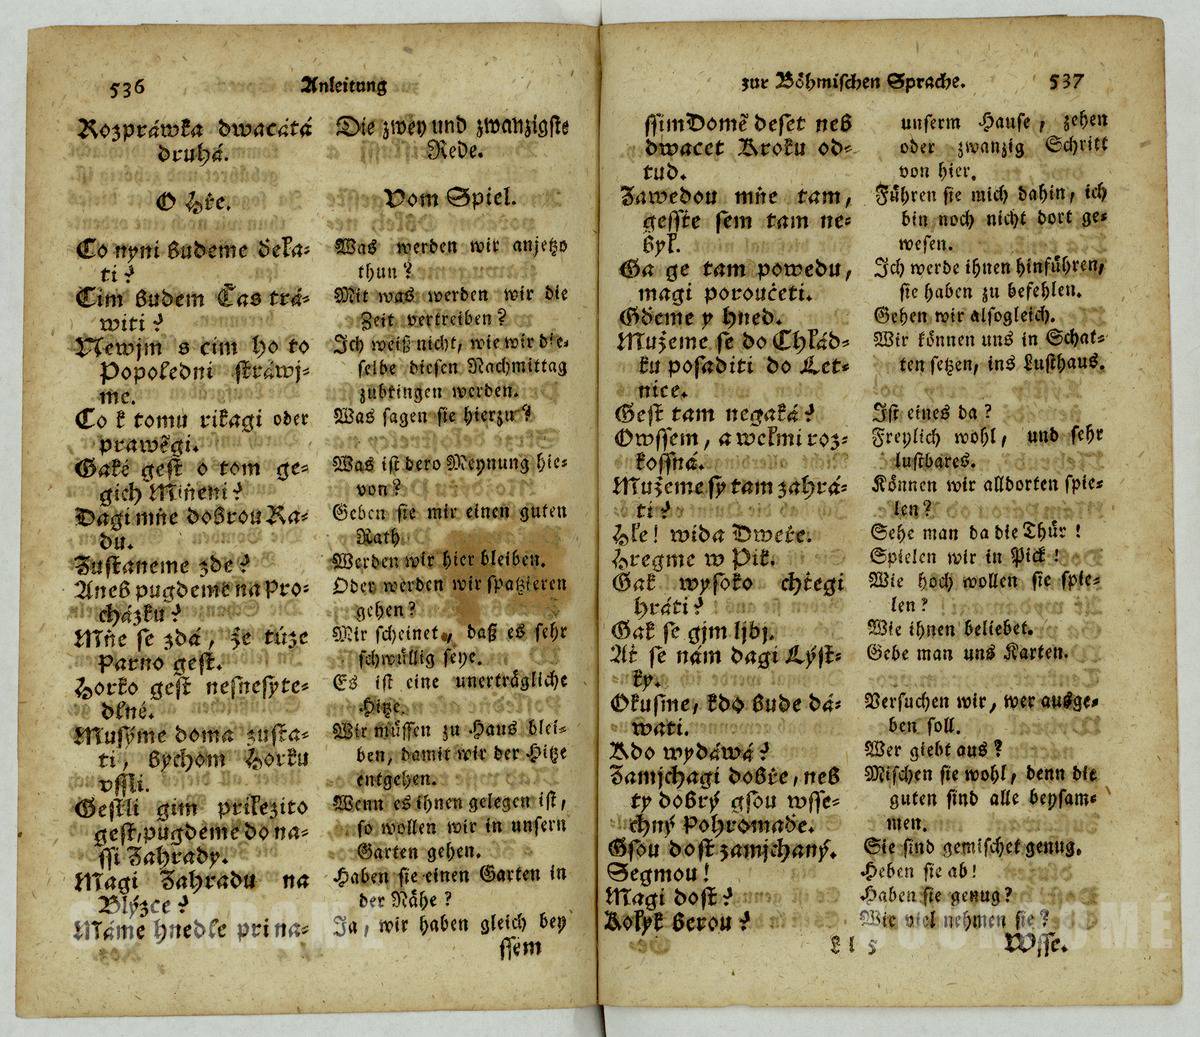 536 Anleitung
Rozpráwka dwacátá
druhá.
O Hře.
Co nyni budeme děla-
ti?
Cim budem Čas trá-
witi?
Newjm s cim ho to
Popoledni stráwj-
me.
Co k tomu rikagi oder
prawěgi.
Gaké gest o tom ge-
gich Miňeni?
Dagi mňe dobrou Ra-
du.
Zustaneme zde?
Aneb pugdeme na Pro-
cházku?
Mňe se zdá, že túze
Parno gest.
Horko gest nesnesyte-
dlné.
Musýme doma zusta-
ti, bychom Horku
vssli.
Gestli gim priležito
gest, pugdeme do na-
ssi Zahrady.
Magi Zahradu na
Blýzce?
Máme hnedle pri na-
Die zwey und zwanzigste
Rede.
Vom Spiel.
Was werden wir anjetzo
thun?
Mit was werden wir die
Zeit vertreiben?
Ich weiß nicht, wie wir die-
selbe diesen Nachmittag
zubringen werden.
Was sagen sie hierzu?
Was ist dero Meynung hie-
von?
Geben sie mir einen guten
Rath.
Werden wir hier bleiben.
Oder werden wir spatzieren
gehen?
Mir scheinet, daß es sehr
schwüllig seye.
Es ist eine unerträgliche
Hitze.
Wir müssen zu Haus blei-
ben, damit wir der Hitze
entgehen.
Wenn es ihnen gelegen ist,
so wollen wir in unsern
Garten gehen.
Haben sie einen Garten in
der Nähe?
Ja, wir haben gleich bey
ssem
zur Böhmischen Sprache. 537
ssim Domě deset neb
dwacet Kroku od-
tud.
Zawedou mňe tam,
gesste sem tam ne-
byl.
Ga ge tam powedu,
magi poroučeti.
Gdeme y hned.
Mužeme se do Chlád-
ku posaditi do Let-
nice.
Gest tam negaká?
Owssem, a welmi roz-
kossná.
Mužeme sy tam zahrá-
ti?
Hle! wida Dweře.
Hregme w Pik.
Gak wysoko chtegi
hráti?
Gak se gjm ljbj.
At se nám dagi Lýst-
ky.
Okusme, kdo bude dá-
wati.
Kdo wydáwá?
Zamjchagi dobře, neb
ty dobrý gsou wsse-
chný Pohromade.
Gsou dost zamjchaný.
Segmou!
Magi dost?
Kolyk berou?
unserm Hause, zehen
oder zwanzig Schritt
von hier.
Führen sie mich dahin, ich
bin noch nicht dort ge-
wesen.
Ich werde ihnen hinführen,
sie haben zu befehlen.
Gehen wir alsogleich.
Wir können uns in Schat-
ten setzen, ins Lusthaus.
Ist eines da?
Freylich wohl, und sehr
lustbares.
Können wir alldorten spie-
len?
Sehe man da die Thür!
Spielen wir in Pick!
Wie hoch wollen sie spie-
len?
Wie ihnen beliebet.
Gebe man uns Karten.
Versuchen wir, wer ausge-
ben soll.
Wer giebt aus?
Mischen sie wohl, denn die
guten sind alle beysam-
men.
Sie sind gemischet genug.
Heben sie ab!
Haben sie genug?
Wie viel nehmen sie?
Ll 5 Wsse.